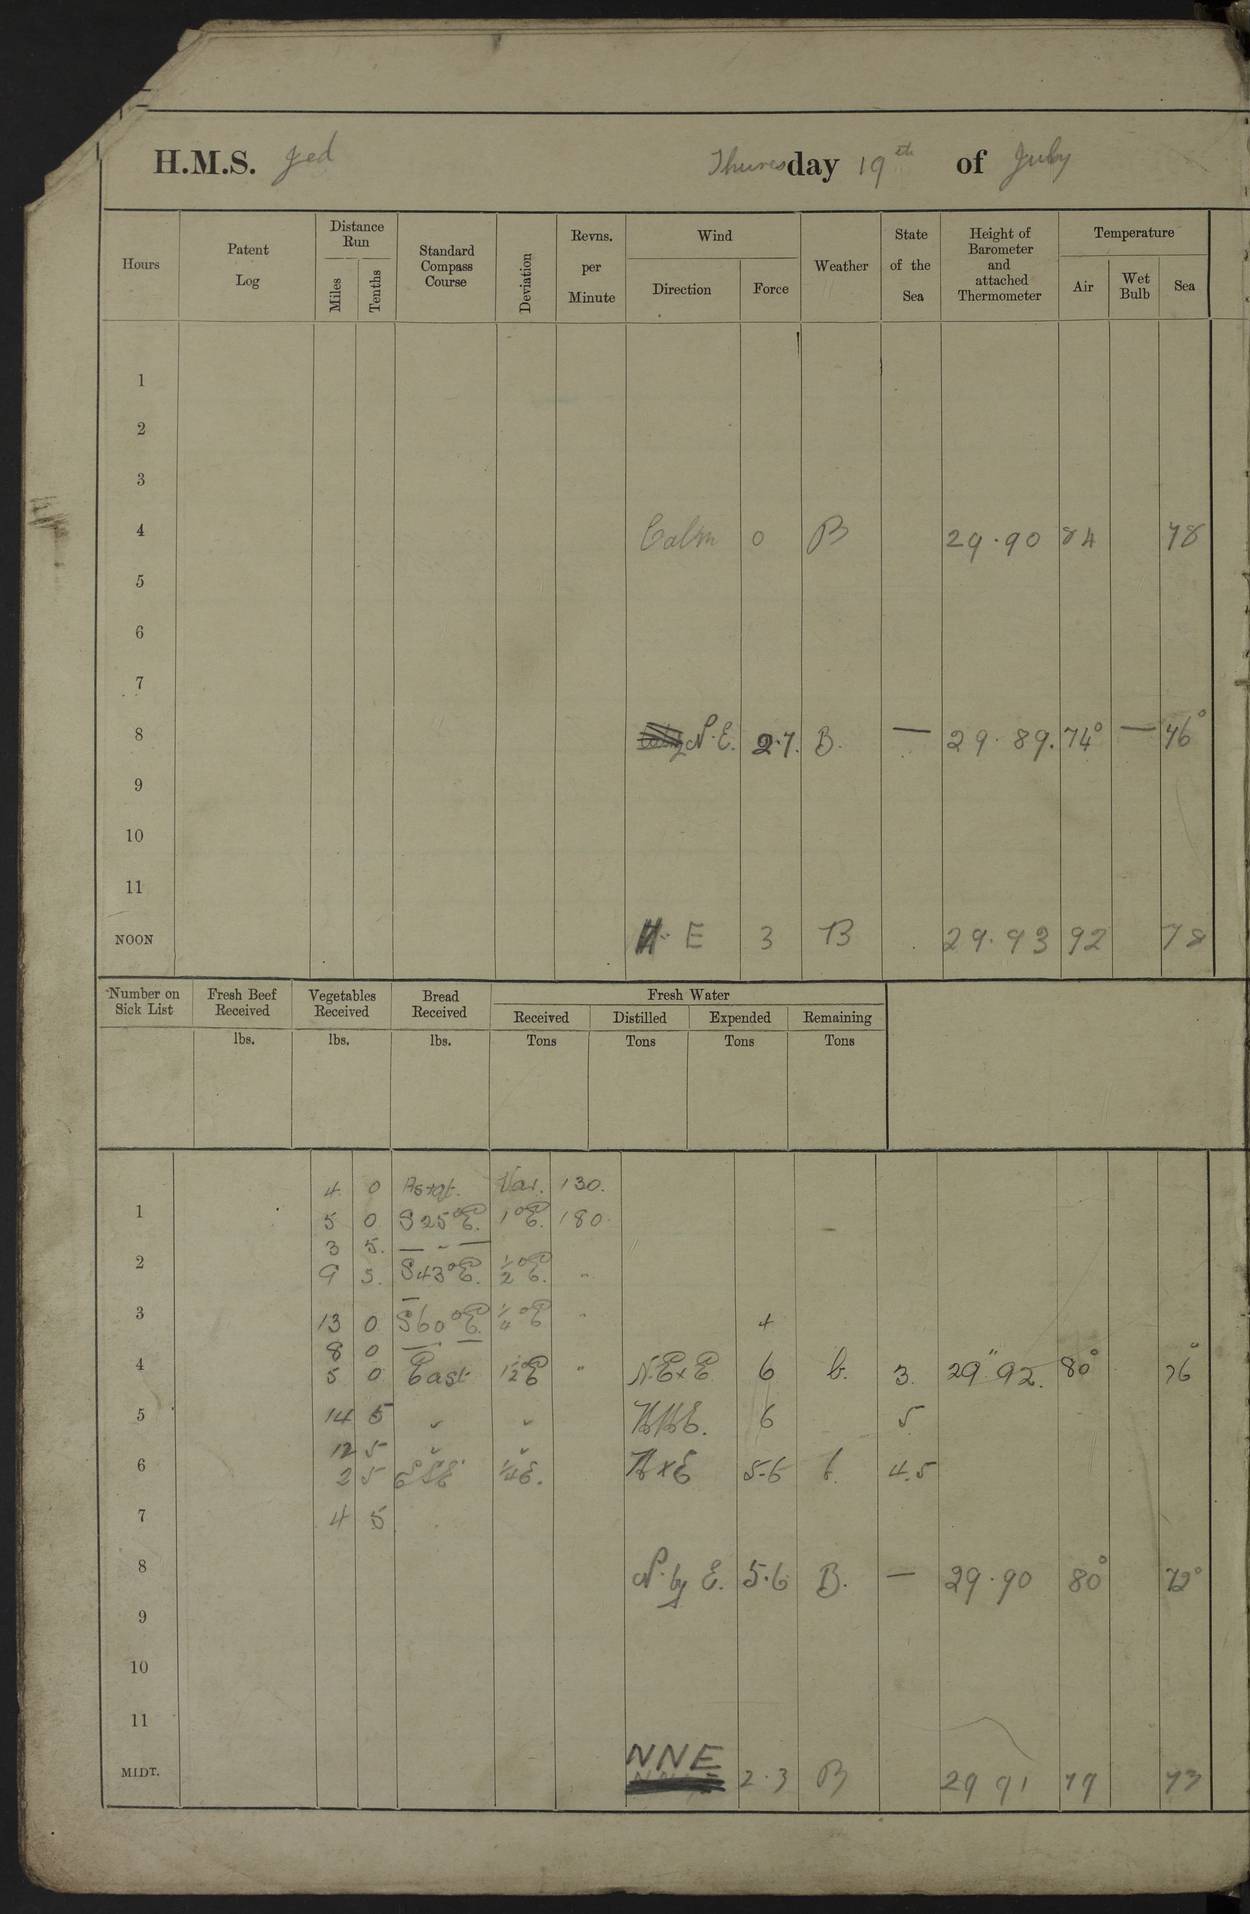 H.M.S. Jed Thursday 19th of July
Hours Patent Log Distance Run Miles Tenths Standard Compass Course Deviation Revns. per Minute Wind Direction Force Weather State of the Sea Height of Barometer and attached Thermometer Temperature Air Wet Bulb Sea
1
2
3
4 Calm 0 B 29.90 84 78
5
6
7
8 N.E. 2.1. B. — 29.89. 74° — 76°
9
10
11
NOON E 3 B 29.93 92 78
Number on Sick List Fresh Beef Received Vegetables Received Bread Received Fresh Water
Received Distilled Expended Remaining
lbs. lbs. lbs. Tons Tons Tons Tons
4 0 Var. 130.
1 5 0 S25°E. 1°E. 180
3 5. — - —
2 9 5. S43°E. ½°E. "
3 13 0 S60°E. ¼°E "
8 0 — —
4 5 0 East 1½°E " N.ExE 6 b. 3. 29".92. 80° 76°
5 14 5 " " NNE. 6 5
12 5 " "
6 2 5 ESE ¼E. NxE 5-6 b. 4.5
7 4 5
8 N. by E. 5.6 B. — 29.90 80° 72°
9
10
11
MIDT. NNE 2.3 B 29 91 79 73